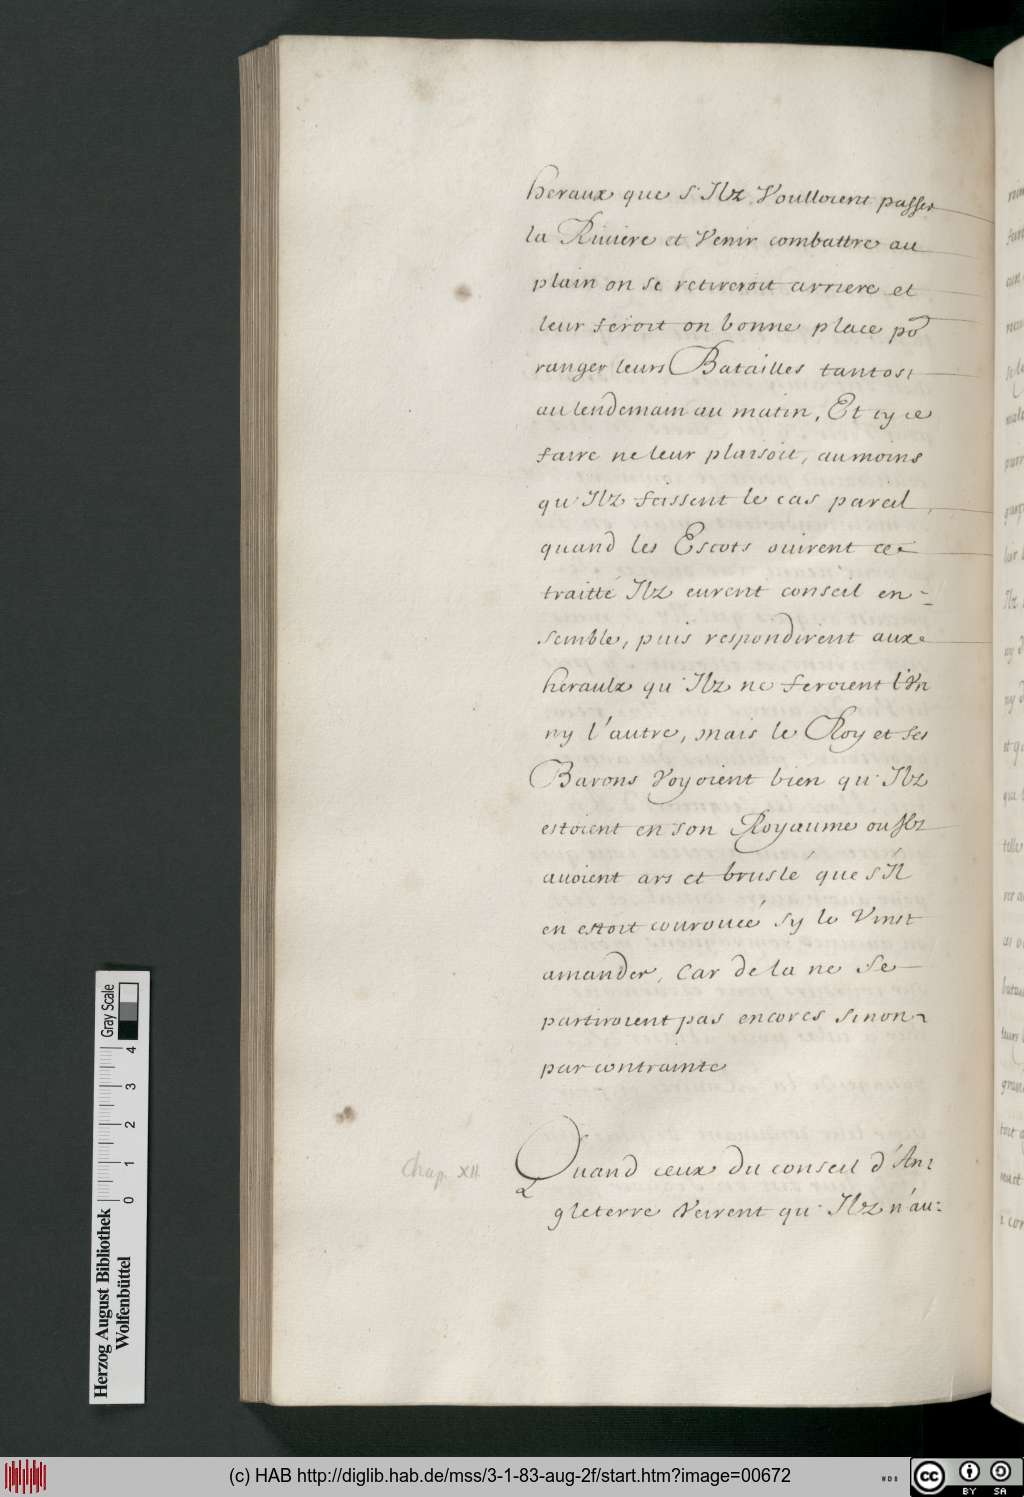 heraux que s'Ilz Voulloient passer
la Riuiere et Venir combattre au
plain on se retireroit arriere et
leur feroit on bonne place po
ranger leurs Batailles tantost
au lendemain au matin, Et sy ce
faire ne leur plaisoit, aumoins
qu'Ilz feissent le cas pareil,
quand les Escots ouirent ce
traitté Ilz eurent conseil en-
semble, puis respondirent aux
heraulx qu'Ilz ne feroient l'Vn
ny l'autre, mais le Roy et ses
Barons Voyoient bien qu'Ilz
estoient en son Royaume ou Ilz
auoient ars et bruslé que s'Il
en estoit courouée sy le Vinst
amander, Car de la ne se
partiroient pas encores sinon
par contrainte
Chap. XII.
Quand ceux du conseil d'An:
gleterre Veirent qu'Ilz n'au:
Herzog August Bibliothek
Wolfenbüttel
0 1 2 3 4
Gray Scale
(c) HAB http://diglib.hab.de/mss/3-1-83-aug-2f/start.htm?image=00672
WDB
cc BY SA